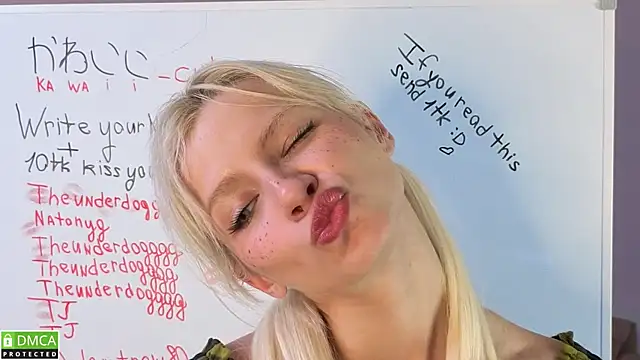 かわいい
KA WA i i
Write your
+
10tk kiss you
Theunderdogg
Natonyg
Theunderdogggg
Theunderdogggg
Theunderdogggg
TJ
TJ
If you read this
send 1tk :D
DMCA
PROTECTED